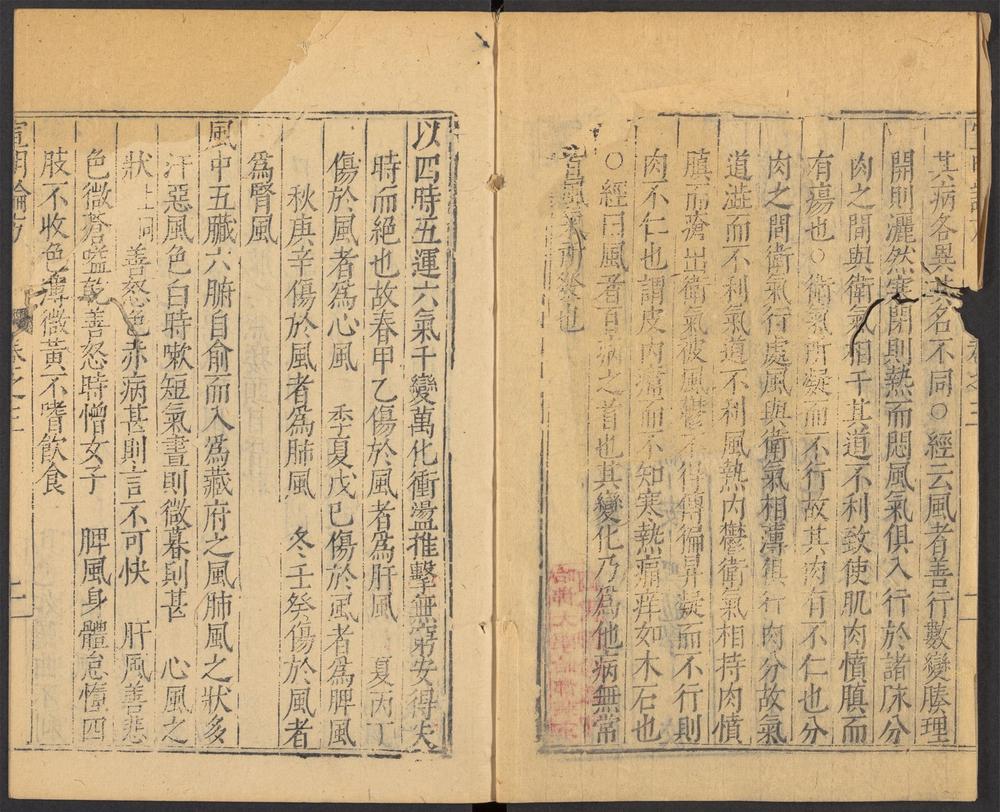 其病各異其名不同○經云風者善行數變腠理
開則灑然寒閉則熱而悶風氣俱入行於諸脉分
肉之間與衛氣相干其道不利致使肌肉憤䐜而
有瘍也○衛氣所凝而不行故其肉有不仁也分
肉之間衛氣行處風與衛氣相薄俱行肉分故氣
道澁而不利氣道不利風熱内鬱衛氣相持肉憤
䐜而瘡出衛氣被風鬱不得傳徧昇凝而不行則
肉不仁也謂皮肉𤸷而不知寒熱痛痒如木石也
○經曰風者百病之首也其變化乃為他病無常
皆風氣所發也
以四時五運六氣千變萬化衝盪推擊無窮安得失
時而絕也故春甲乙傷於風者為肝風 夏丙丁
傷於風者為心風 季夏戊巳傷於風者為脾風
秋庚辛傷於風者為肺風 冬壬癸傷於風者
為腎風
風中五臟六腑自俞而入為藏府之風肺風之狀多
汗惡風色白時嗽短氣晝則微暮則甚 心風之
狀上同 善怒色赤病甚則言不可快 肝風善悲
色微蒼嗌乾善怒時憎女子 脾風身體怠惰四
肢不收色薄微黃不嗜飲食
宣明論方 卷之三 二